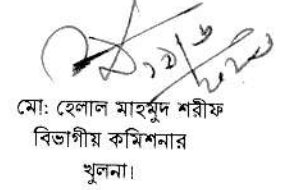 মো: হেলাল মাহমুদ শরীফ
বিভাগীয় কমিশনার
খুলনা।